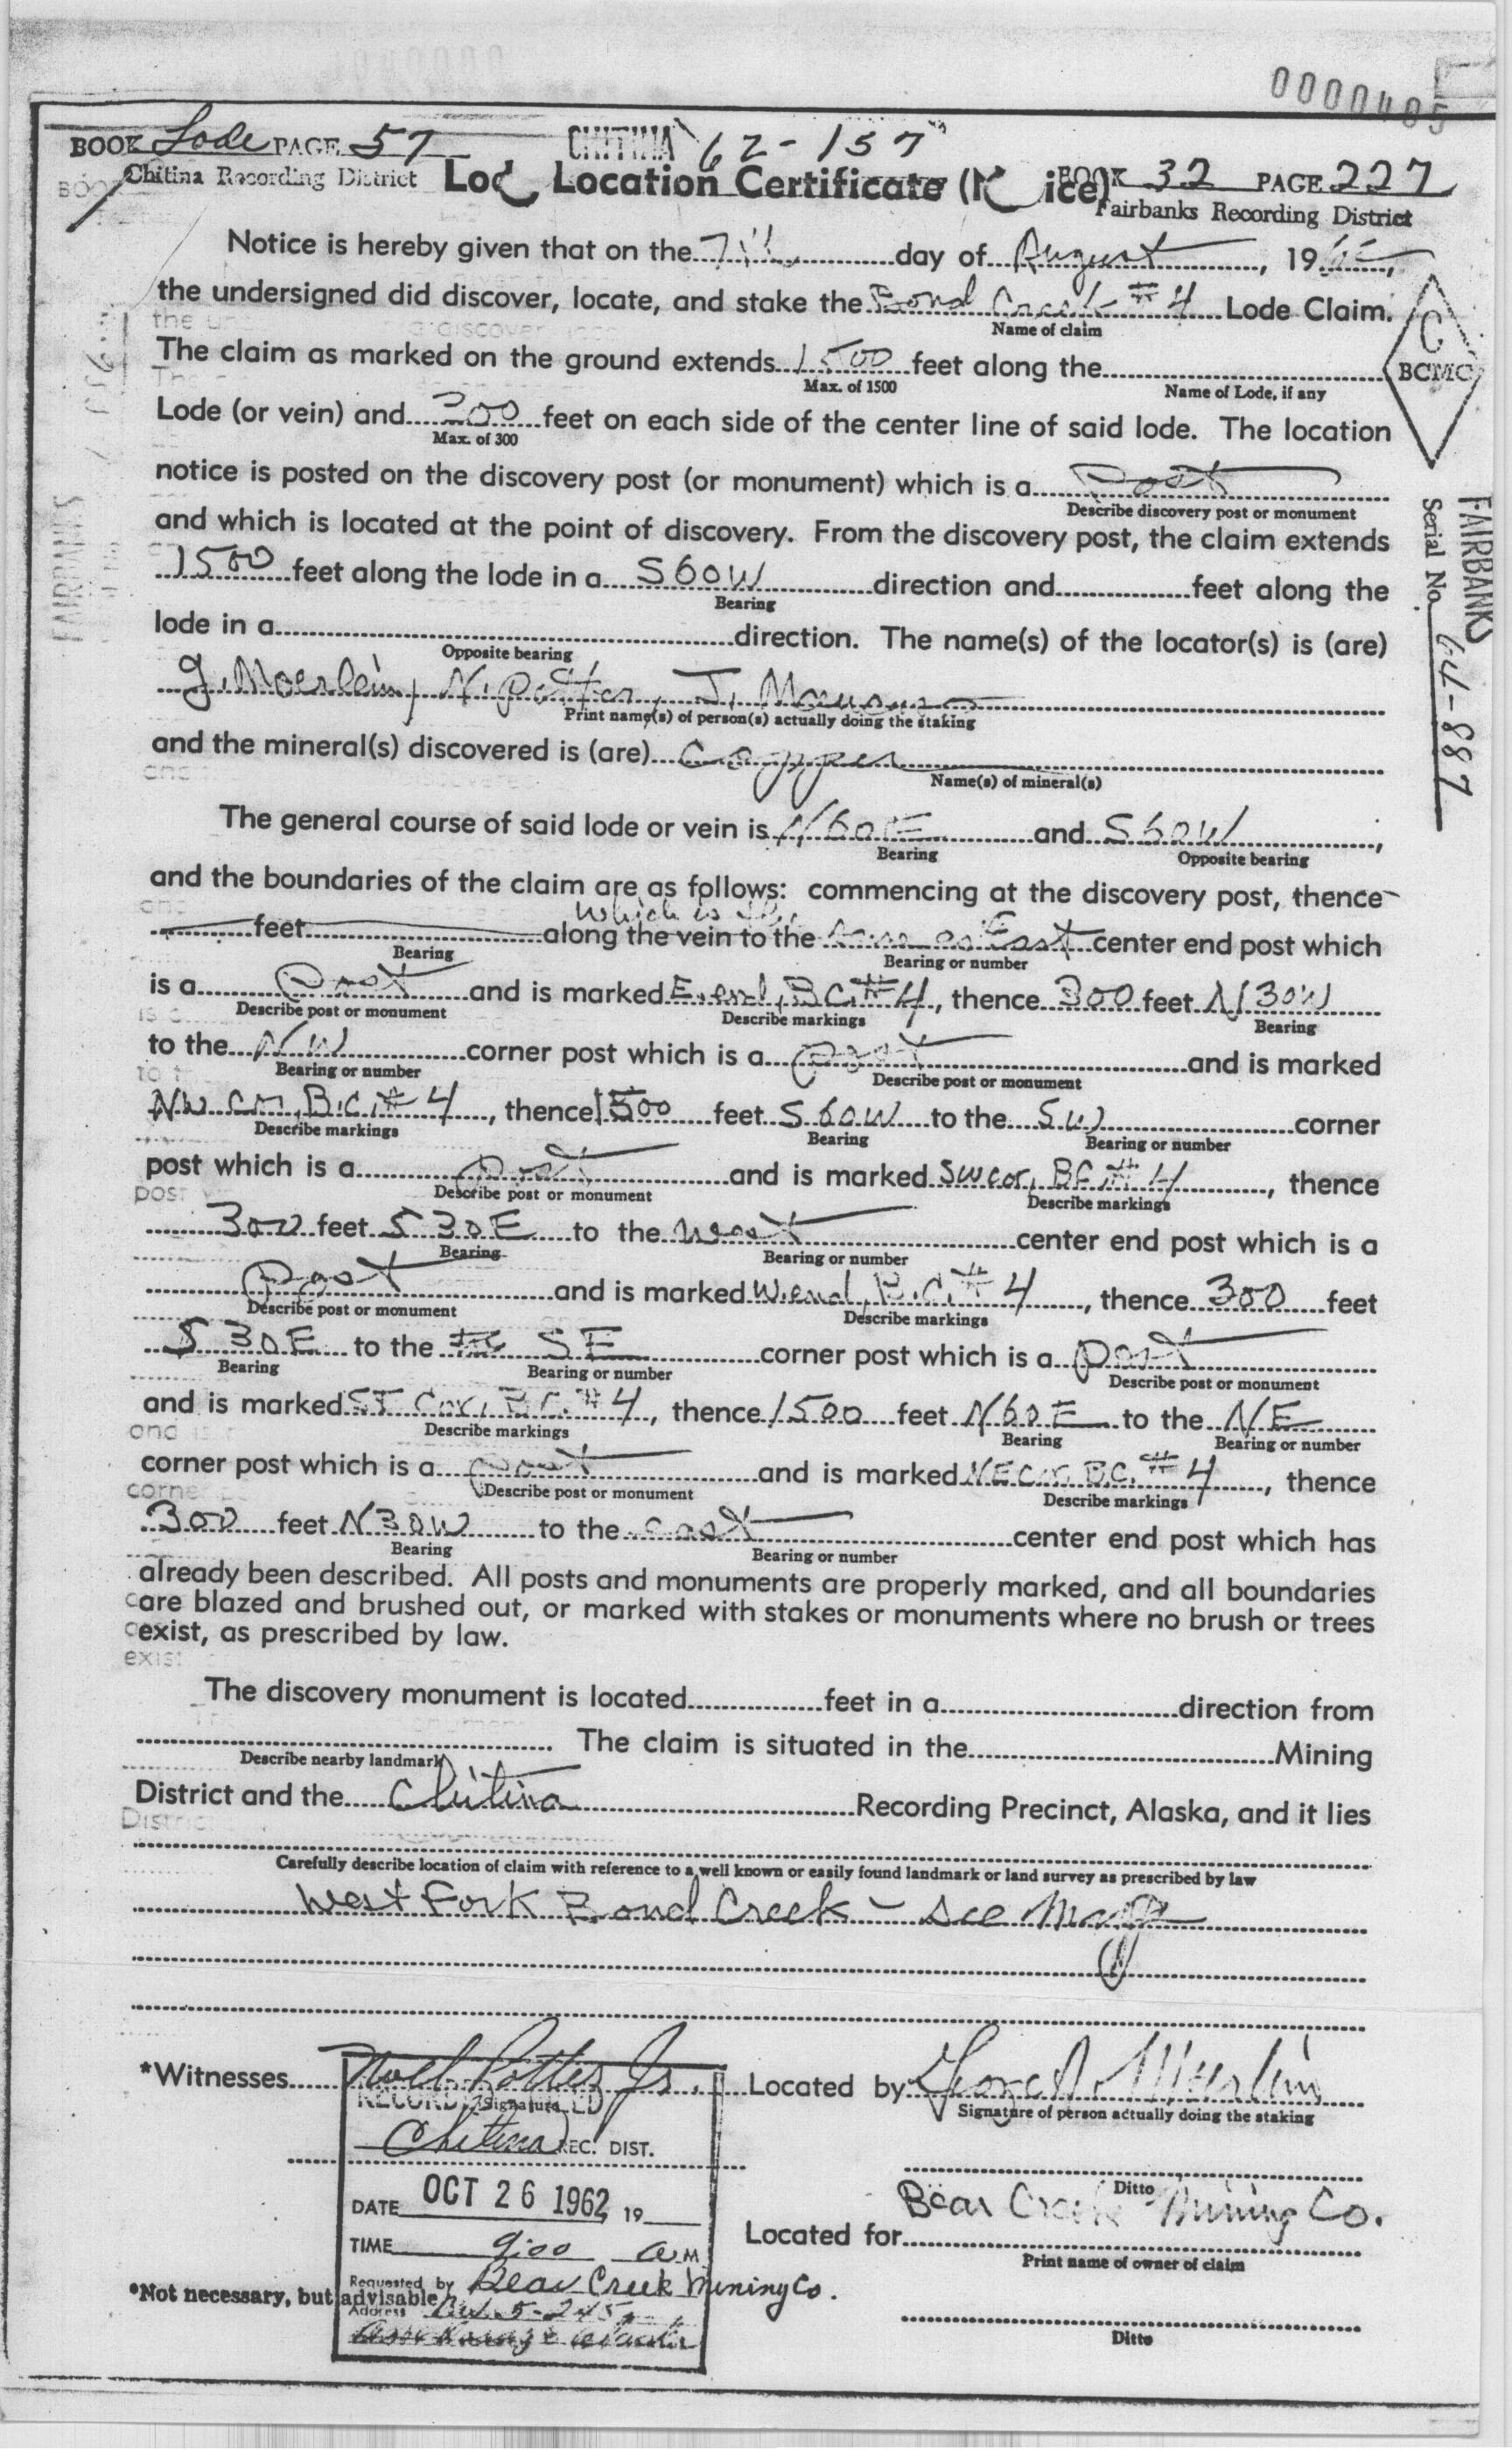 0000405
BOOK Lode PAGE 57 CHITINA 62-157
Chitina Recording District Location Certificate BOOK 32 PAGE 227
Fairbanks Recording District
Notice is hereby given that on the 7th day of August, 19
the undersigned did discover, locate, and stake the Bond Creek #4 Lode Claim.
Name of claim
C
BCMC
The claim as marked on the ground extends 1500 feet along the
Max. of 1500 Name of Lode, if any
Lode (or vein) and 300 feet on each side of the center line of said lode. The location
Max. of 300
notice is posted on the discovery post (or monument) which is a Post
Describe discovery post or monument
and which is located at the point of discovery. From the discovery post, the claim extends
1500 feet along the lode in a S60W direction and feet along the
Bearing
lode in a direction. The name(s) of the locator(s) is (are)
Opposite bearing
G. Moerlein, N. Potter, J.
Print name(s) of person(s) actually doing the staking
FAIRBANKS
Serial No. 64-887
and the mineral(s) discovered is (are) Copper
Name(s) of mineral(s)
The general course of said lode or vein is N60E and S60W,
Bearing Opposite bearing
and the boundaries of the claim are as follows: commencing at the discovery post, thence
which is the
feet along the vein to the same as East center end post which
Bearing Bearing or number
is a Post and is marked E. end, B.C. #4, thence 300 feet N30W
Describe post or monument Describe markings Bearing
to the NW corner post which is a post and is marked
Bearing or number Describe post or monument
NW cor, B.C. #4, thence 1500 feet S60W to the SW corner
Describe markings Bearing Bearing or number
post which is a post and is marked SW cor, BC #4, thence
Describe post or monument Describe markings
300 feet S30E to the west center end post which is a
Bearing Bearing or number
post and is marked W. end, B.C. #4, thence 300 feet
Describe post or monument Describe markings
S30E to the SE corner post which is a post
Bearing Bearing or number Describe post or monument
and is marked SE Cor, B.C. #4, thence 1500 feet N60E to the NE
Describe markings Bearing Bearing or number
corner post which is a post and is marked NE Cor, B.C. #4, thence
Describe post or monument Describe markings
300 feet N30W to the east center end post which has
Bearing Bearing or number
already been described. All posts and monuments are properly marked, and all boundaries
are blazed and brushed out, or marked with stakes or monuments where no brush or trees
exist, as prescribed by law.
The discovery monument is located feet in a direction from
The claim is situated in the Mining
Describe nearby landmark
District and the Chitina Recording Precinct, Alaska, and it lies
Carefully describe location of claim with reference to a well known or easily found landmark or land survey as prescribed by law
West Fork Bond Creek - see Map
*Witnesses Noel Potter Jr. Located by George Moerlein
RECORDED Signature Signature of person actually doing the staking
Chitina REC. DIST.
Ditto
DATE OCT 26 1962 19
Bear Creek Mining Co.
Located for
Print name of owner of claim
TIME 9:00 A.M.
Requested by Bear Creek Mining Co.
*Not necessary, but advisable
Address
Ditto